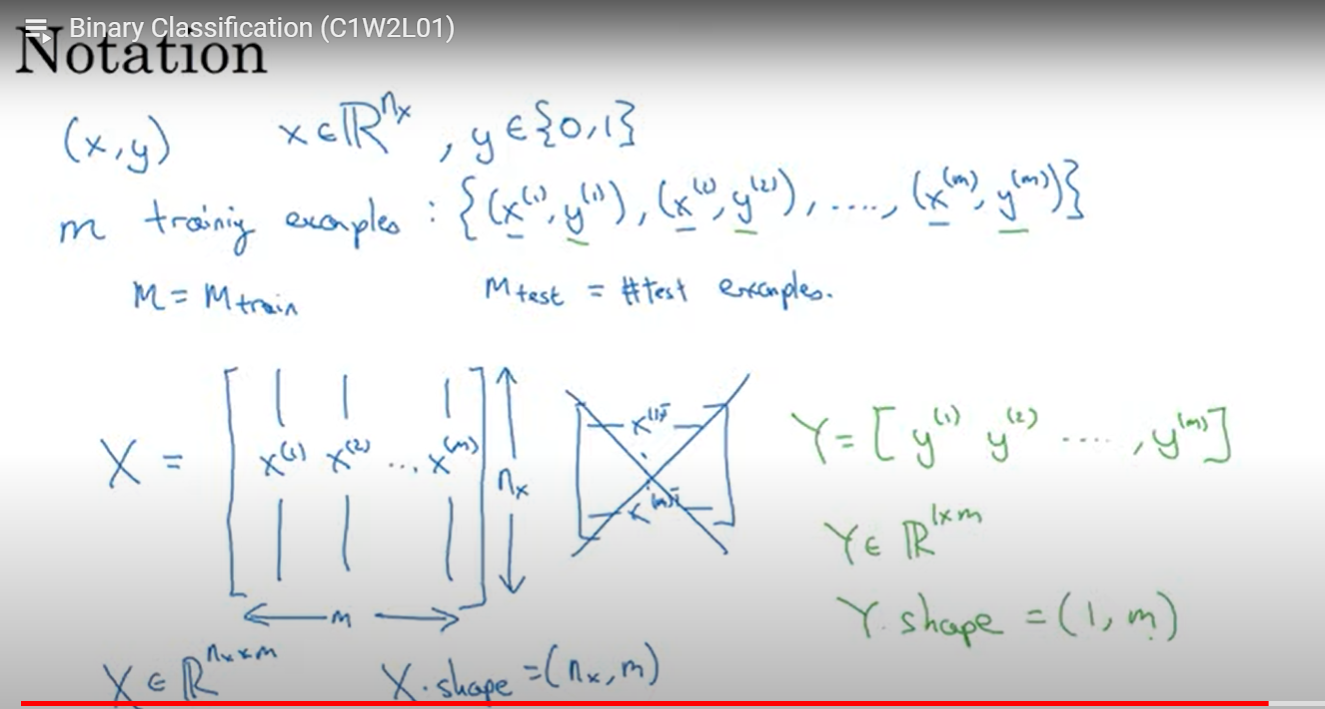 Binary Classification (C1W2L01)
Notation
(x,y) x ∈ ℝ^{n_x}, y ∈ {0,1}
m training examples : {(x^{(1)}, y^{(1)}), (x^{(2)}, y^{(2)}), ...., (x^{(m)}, y^{(m)})}
M = M_{train} M_{test} = #test examples.
X = [ x^{(1)} x^{(2)} ... x^{(m)} ] n_x
x^{(1)T}
x^{(m)T}
m
Y = [ y^{(1)} y^{(2)} ...., y^{(m)} ]
Y ∈ ℝ^{1×m}
Y.shape = (1, m)
X ∈ ℝ^{n_x×m} X.shape = (n_x, m)